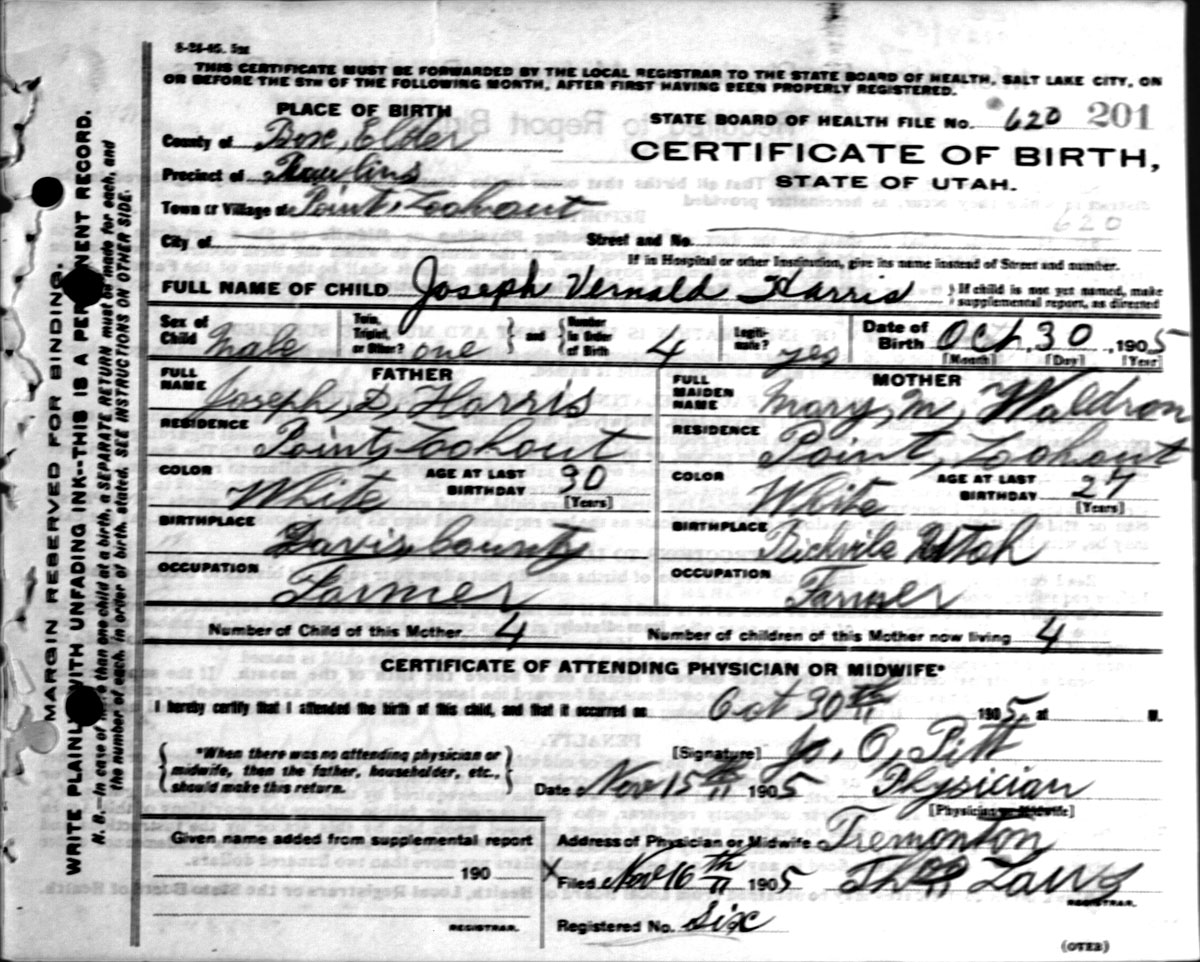 8-28-05. 5m
THIS CERTIFICATE MUST BE FORWARDED BY THE LOCAL REGISTRAR TO THE STATE BOARD OF HEALTH, SALT LAKE CITY, ON
OR BEFORE THE 5TH OF THE FOLLOWING MONTH, AFTER FIRST HAVING BEEN PROPERLY REGISTERED.
PLACE OF BIRTH
County of Box, Elder
Precinct of Rawlins
Town or Village of Point, Lookout
City of
STATE BOARD OF HEALTH FILE No. 620 201
CERTIFICATE OF BIRTH,
STATE OF UTAH.
620
Street and No.
If in Hospital or other Institution, give its name instead of Street and number.
FULL NAME OF CHILD Joseph Vernald Harris } If child is not yet named, make supplemental report, as directed
Sex of Child Male Twin, Triplet, or Other? one } and { Number in Order of Birth 4 Legitimate? yes Date of Birth Oct, 30, 1905
[Month] [Day] [Year]
FATHER
FULL NAME Joseph, D, Harris
RESIDENCE Point, Lookout
COLOR White AGE AT LAST BIRTHDAY 30 [Years]
BIRTHPLACE Davis, County
OCCUPATION Farmer
MOTHER
FULL MAIDEN NAME Mary, M, Waldron
RESIDENCE Point, Lookout
COLOR White AGE AT LAST BIRTHDAY 27 [Years]
BIRTHPLACE Richvile Utah
OCCUPATION Farmer
Number of Child of this Mother 4 Number of children of this Mother now living 4
CERTIFICATE OF ATTENDING PHYSICIAN OR MIDWIFE*
I hereby certify that I attended the birth of this child, and that it occurred on Oct 30th 1905, at M.
{ *When there was no attending physician or midwife, then the father, householder, etc., should make this return. }
[Signature] O, Pitt
Date Nov 15th 1905 Physician
[Physician or Midwife]
Given name added from supplemental report
190
REGISTRAR.
Address of Physician or Midwife Tremonton
X Filed Nov 16th 1905
REGISTRAR.
Registered No. Six
(OVER)
MARGIN RESERVED FOR BINDING.
WRITE PLAINLY WITH UNFADING INK--THIS IS A PERMANENT RECORD.
N. B.--In case of more than one child at a birth, a SEPARATE RETURN must be made for each, and
the number of each, in order of birth, stated. SEE INSTRUCTIONS ON OTHER SIDE.